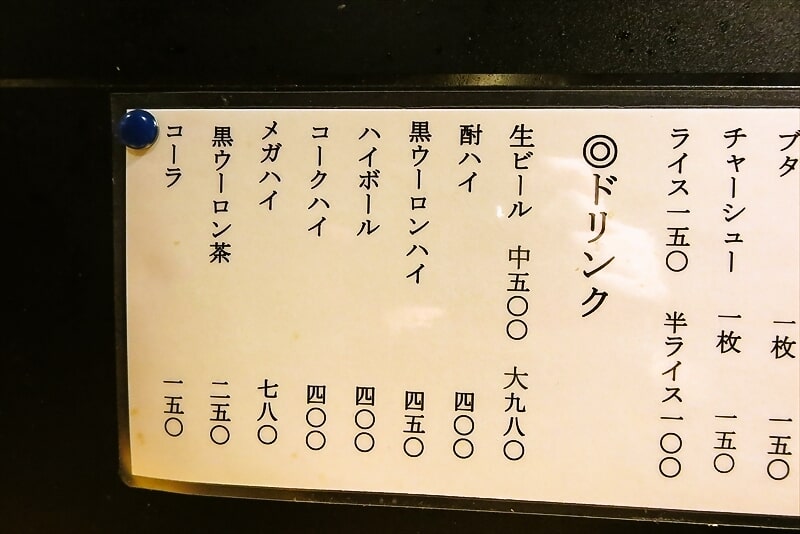 ブタ 一枚 一五〇
チャーシュー 一枚 一五〇
ライス一五〇 半ライス一〇〇
◎ドリンク
生ビール 中五〇〇 大九八〇
酎ハイ 四〇〇
黒ウーロンハイ 四五〇
ハイボール 四〇〇
コークハイ 四〇〇
メガハイ 七八〇
黒ウーロン茶 二五〇
コーラ 一五〇